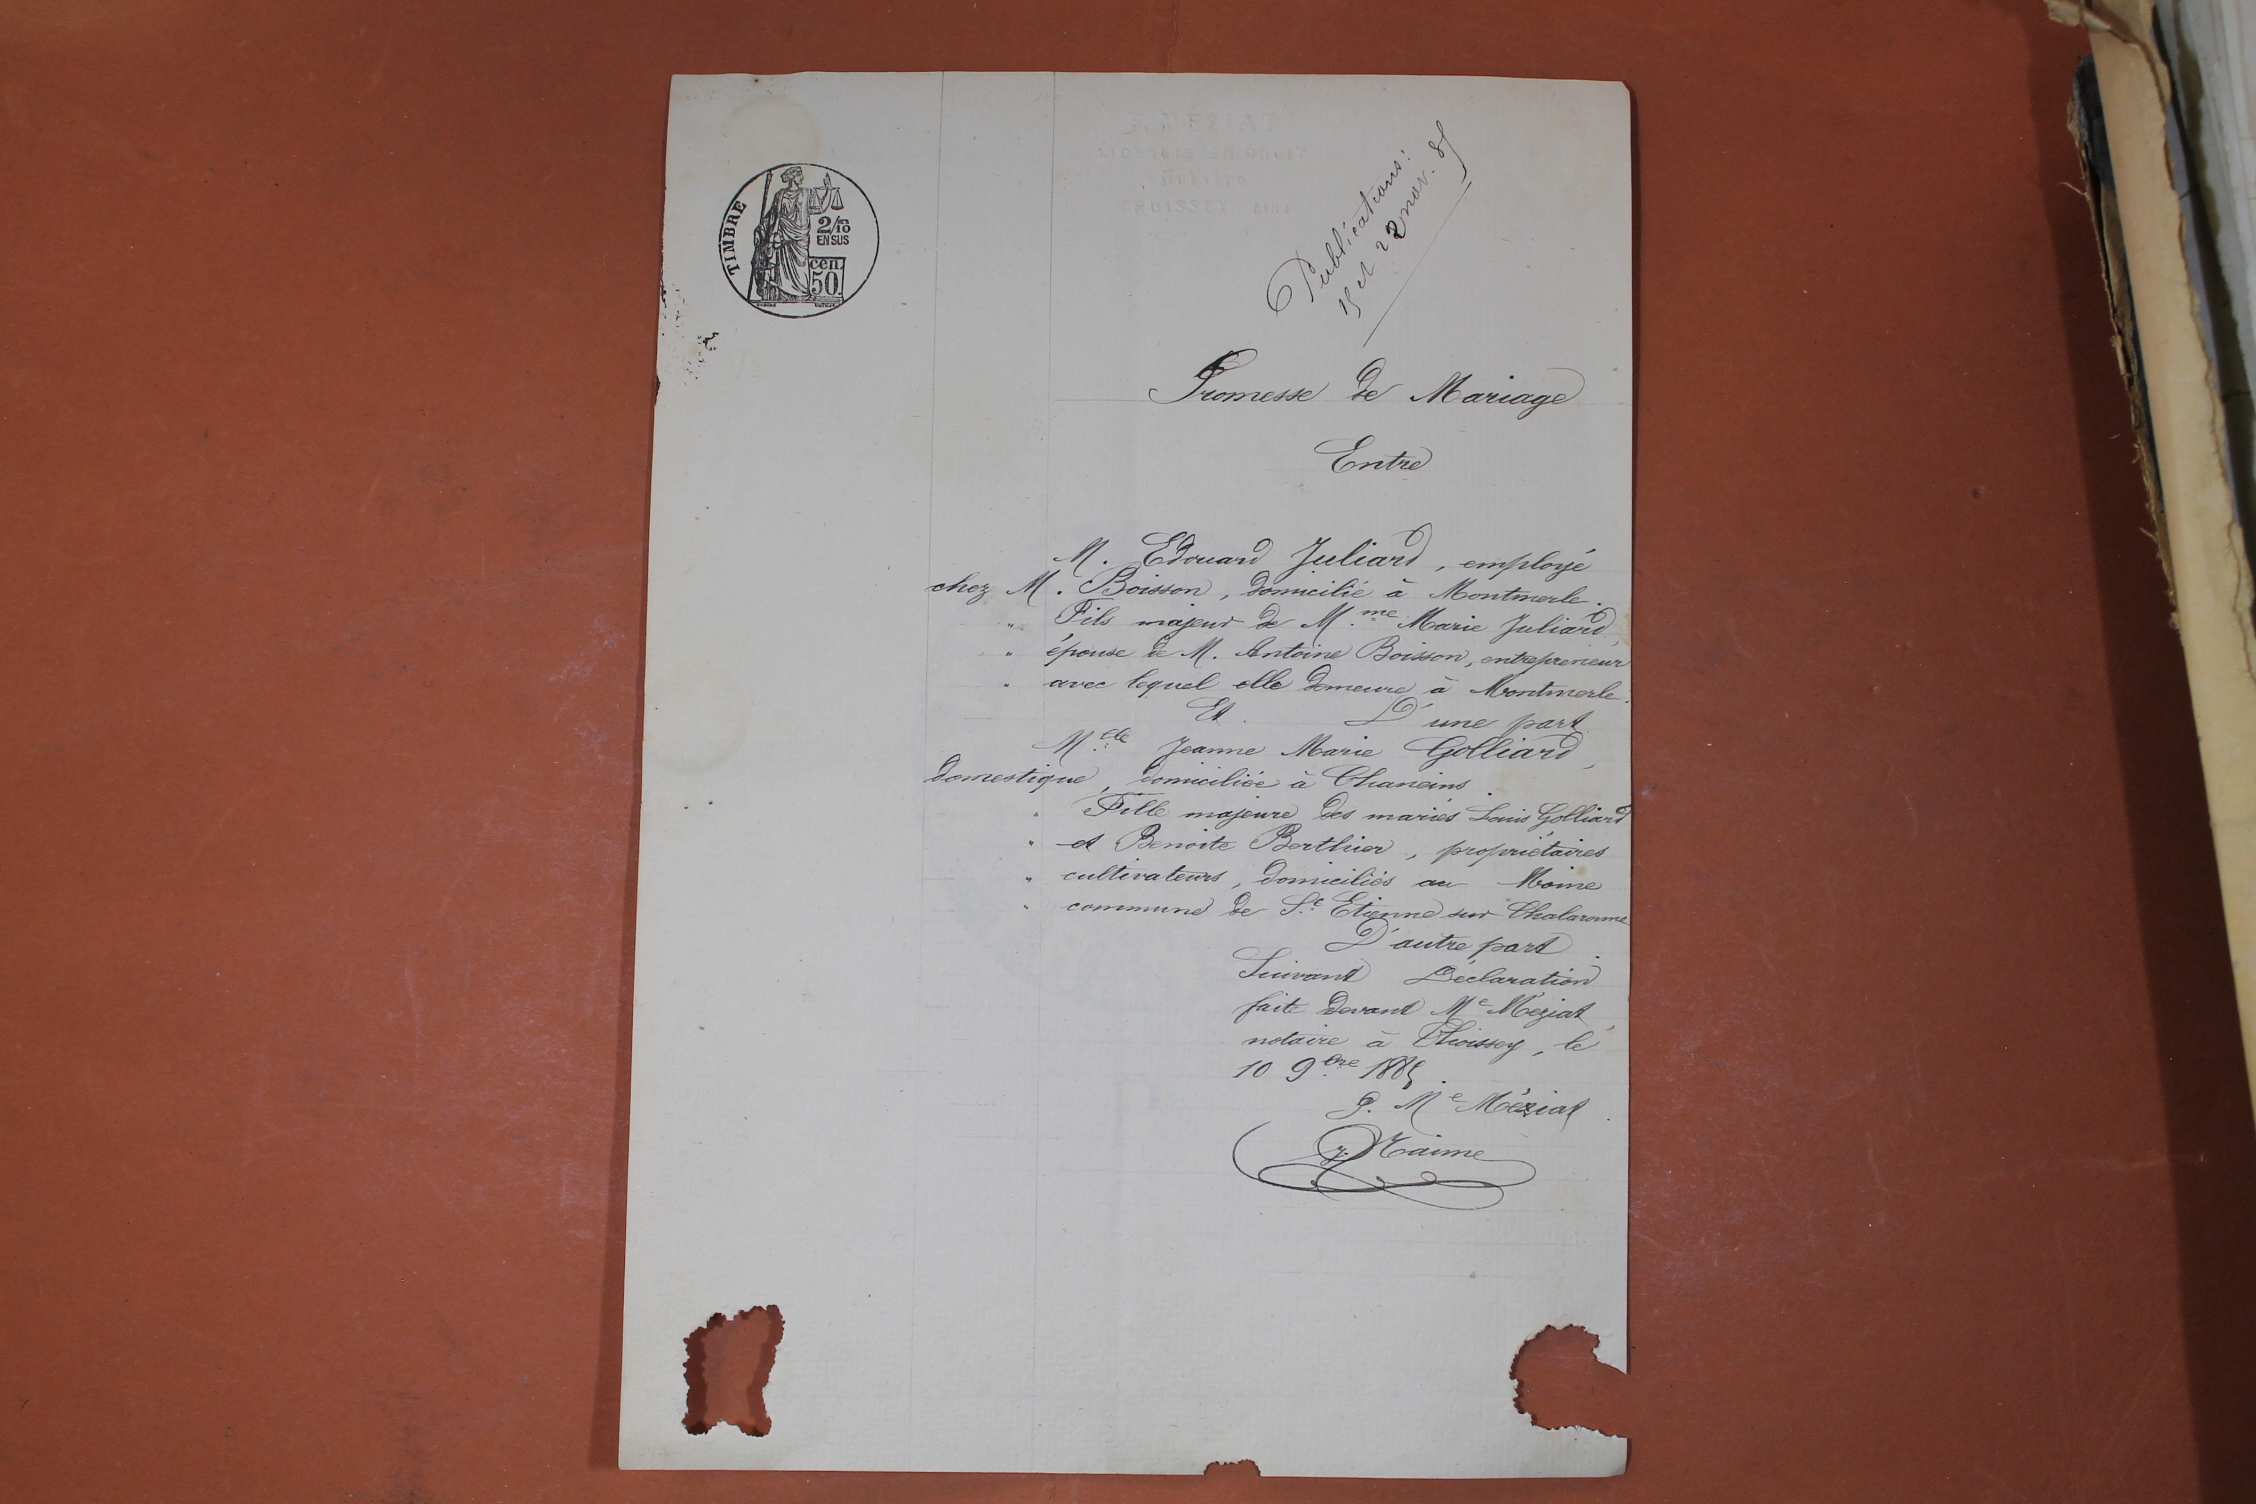 TIMBRE
2/10
EN SUS
cen.
50.
Publications:
15 et 22 nov. 85
Promesse de Mariage
Entre
M. Edouard Juliard, employé
chez M. Boisson, domicilié à Montmerle.
" Fils majeur de M.me Marie Juliard,
" épouse de M. Antoine Boisson, entrepreneur
" avec lequel elle demeure à Montmerle.
Et D'une part
Melle Jeanne Marie Golliard,
domestique, domiciliée à Chaneins.
" Fille majeure des mariés Louis Golliard
" et Benoite Berthier, propriétaires
" cultivateurs, domiciliés au Moine
" commune de St Etienne sur Chalaronne
D'autre part.
Suivant Déclaration
faite devant Me Méziat,
notaire à Thoissey, le
10 9bre 1885.
P. Me Méziat.